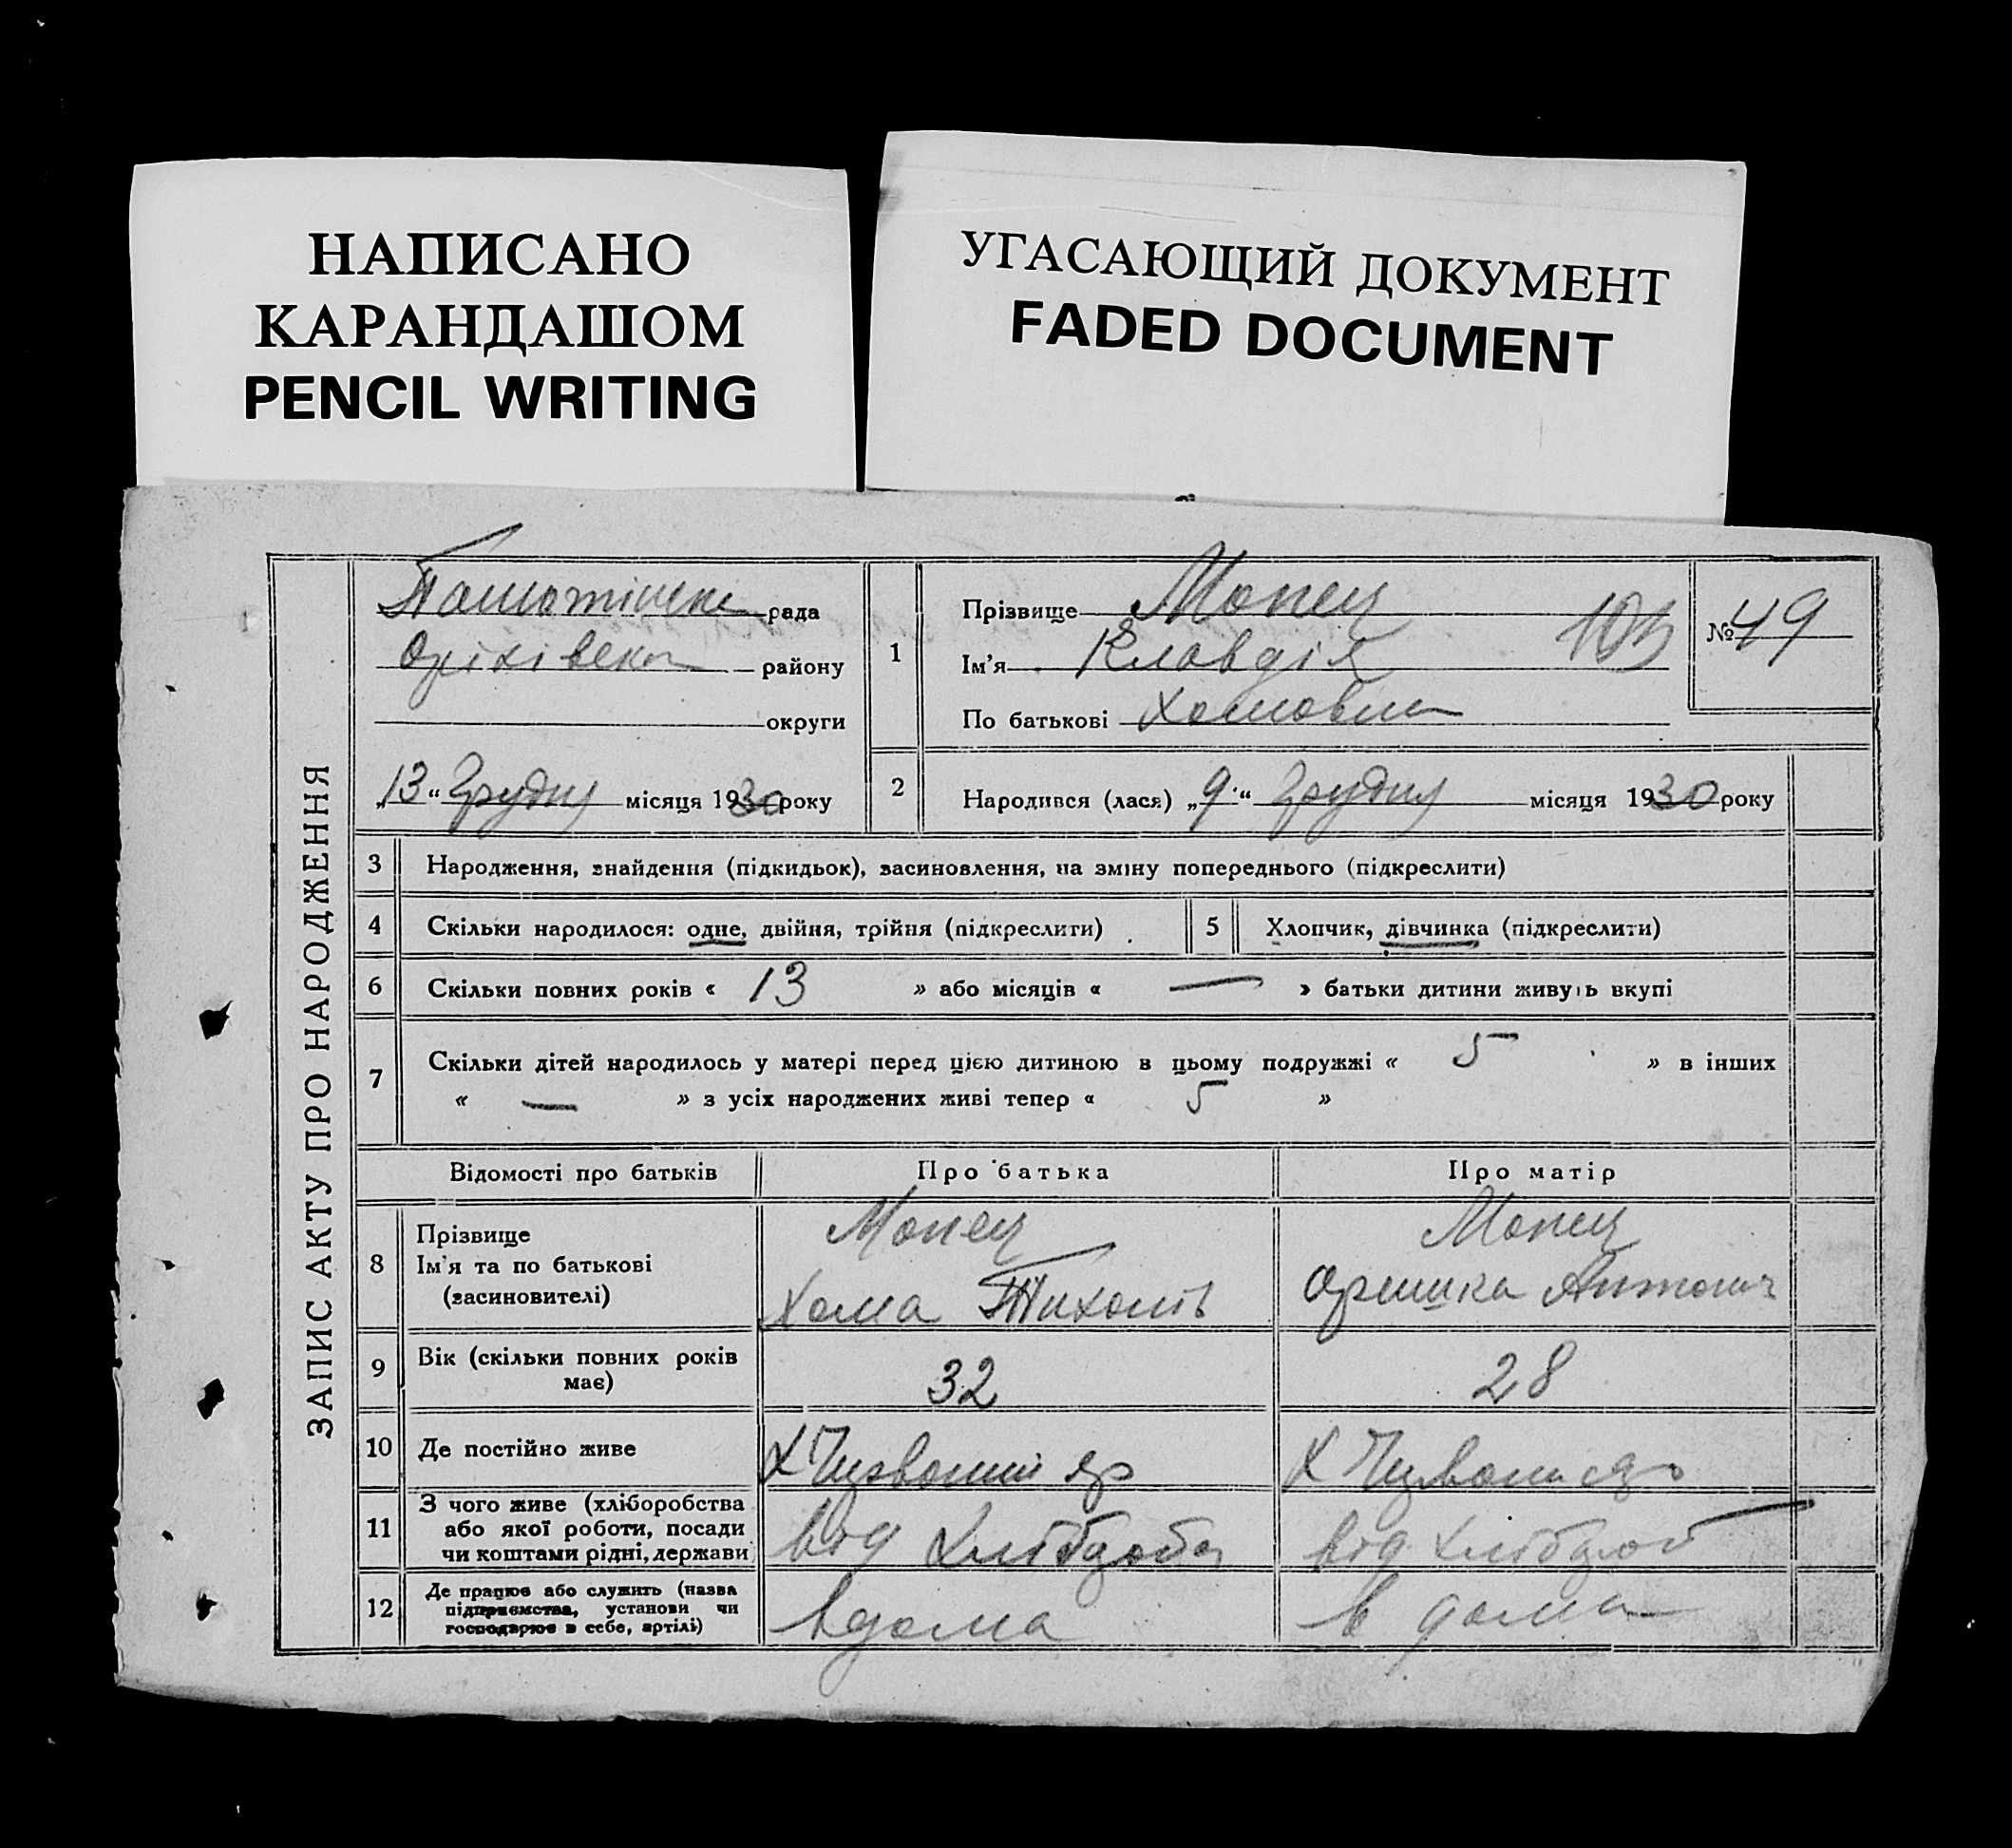 НАПИСАНО
КАРАНДАШОМ
PENCIL WRITING
УГАСАЮЩИЙ ДОКУМЕНТ
FADED DOCUMENT
ЗАПИС АКТУ ПРО НАРОДЖЕННЯ
рада
району
округи
„13“ Грудня місяця 1930 року
1
Прізвище Мопец
Ім'я Клавдія
По батькові Хомовна
№ 49
2 Народився (лася) „9“ Грудня місяця 1930 року
3 Народження, знайдення (підкидьок), засиновлення, на зміну попереднього (підкреслити)
4 Скільки народилося: одне, двійня, трійня (підкреслити)
5 Хлопчик, дівчинка (підкреслити)
6 Скільки повних років « 13 » або місяців « — » батьки дитини живуть вкупі
7 Скільки дітей народилось у матері перед цією дитиною в цьому подружжі « 5 » в інших
« — » з усіх народжених живі тепер « 5 »
Відомості про батьків Про батька Про матір
8 Прізвище
Ім'я та по батькові
(засиновителі)
Мопец
Хома Тихонів
Мопец
Оришка
9 Вік (скільки повних років
має)
32
28
10 Де постійно живе
Х Червоний яр
Х яр
11 З чого живе (хліборобства
або якої роботи, посади
чи коштами рідні, держави
від
від
12 Де працює або служить (назва
підприємства, установи чи
господарює в себе, артілі)
вдома
в дома